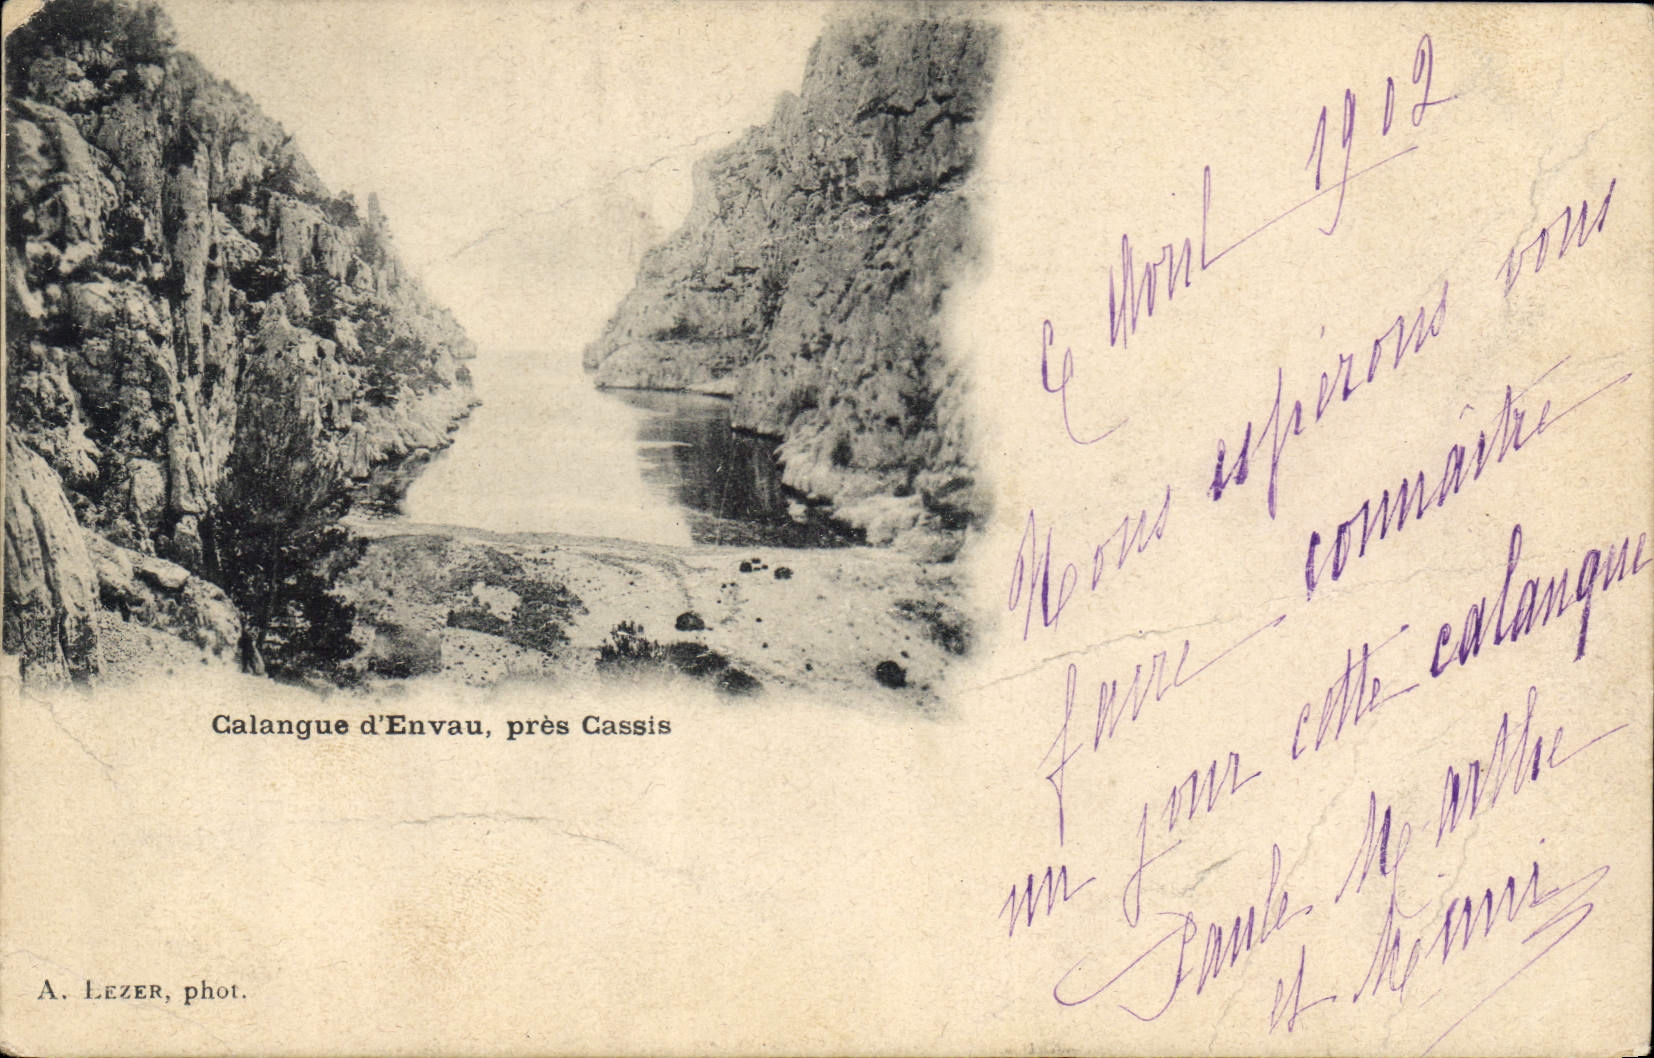 Avril 1902
Nous espérons vous
faire connaître
un jour cette calangue
Paule Marthe
et Mimi
Calangue d'Envau, près Cassis
A. LEZER, phot.